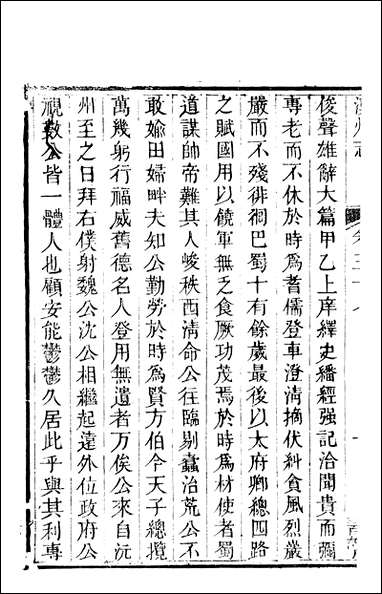 漢州志
卷三十八
俊聲雄辭大篇甲乙上庠繹史繙經強記洽聞貴而彌
專老而不休於時為耆儒登車澄清摘伏糾貪風烈嚴
嚴而不殘徘徊巴蜀十有餘歲最後以太府卿總四路
之賦國用以饒軍無乏食厥功茂焉於時為材使者蜀
道謀帥帝難其人峻秩西清命公往臨剔蠹治荒公不
敢媮田婦畔夫知公勤勞於時為賢方伯今天子總攬
萬幾躬行福威舊德名人登用無遺者万俟公來自沅
州至之日拜右僕射魏公沈公相繼起遠外位政府公
視數公皆一體人也顧安能鬱鬱久居此乎與其利專